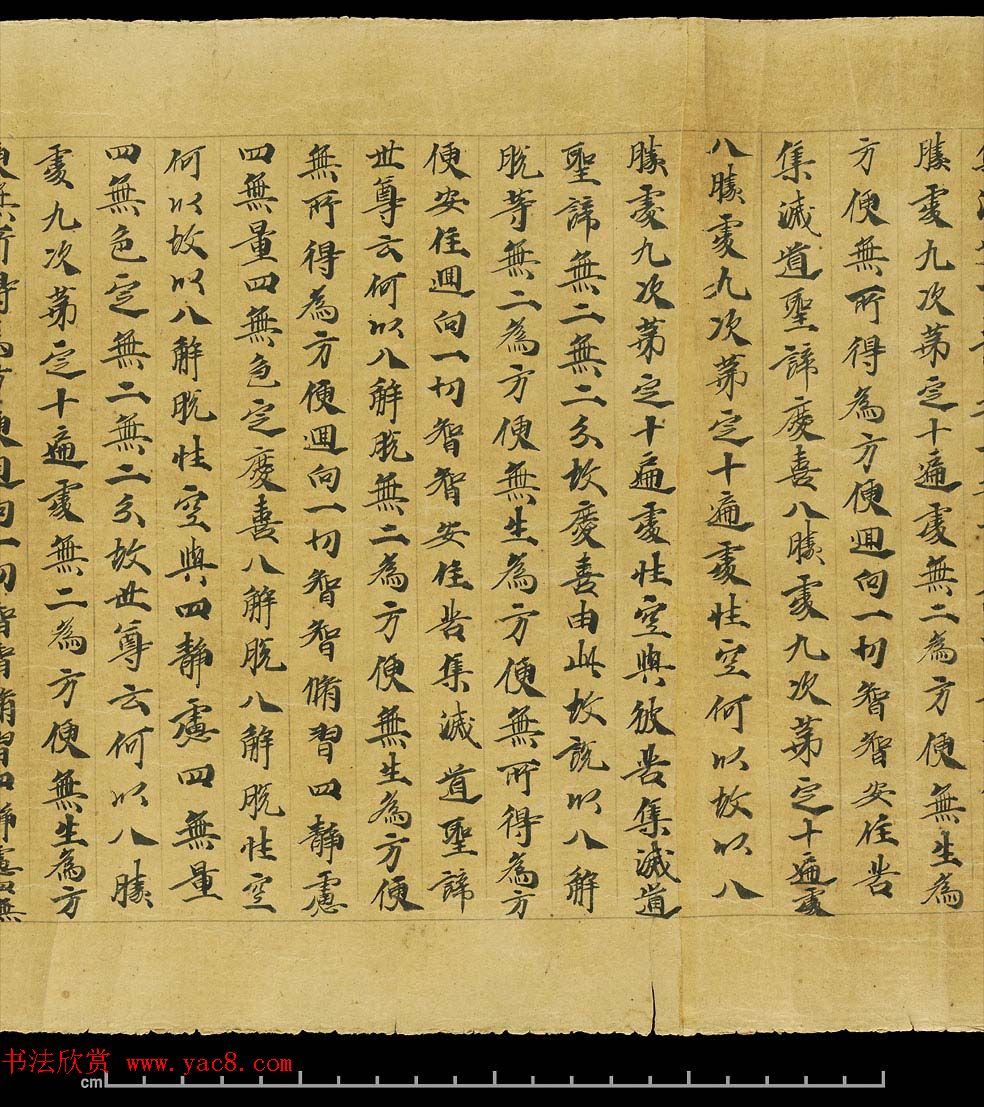 勝處九次第定十遍處無二為方便無生為
方便無所得為方便迴向一切智智安住苦
集滅道聖諦慶喜八勝處九次第定十遍處
八勝處九次第定十遍處性空何以故以八
勝處九次第定十遍處性空與彼苦集滅道
聖諦無二無二分故慶喜由此故說以八解
脫等無二為方便無生為方便無所得為方
便安住迴向一切智智安住苦集滅道聖諦
世尊云何以八解脫無二為方便無生為方便
無所得為方便迴向一切智智脩習四靜慮
四無量四無色定慶喜八解脫八解脫性空
何以故以八解脫性空與四靜慮四無量
四無色定無二無二分故世尊云何以八勝
處九次第定十遍處無二為方便無生為方
便無所得為方便迴向一切智智脩習四靜慮四無
书法欣赏 www.yac8.com
cm